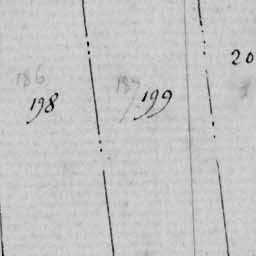 20
186
187
198
199